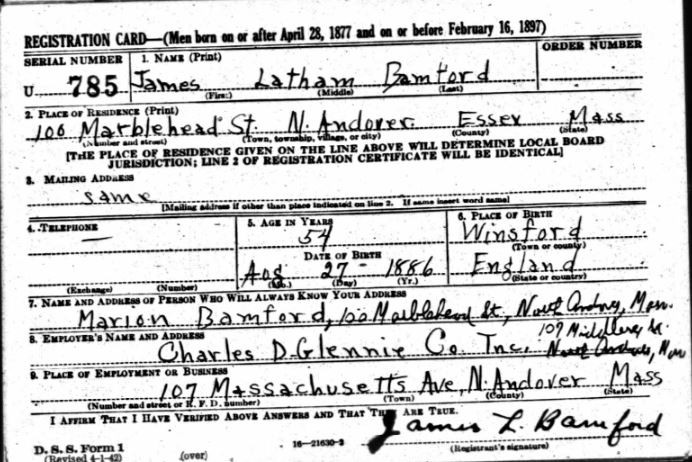 REGISTRATION CARD—(Men born on or after April 28, 1877 and on or before February 16, 1897)
SERIAL NUMBER 1. NAME (Print) ORDER NUMBER
U 785 James Latham Bamford
(First) (Middle) (Last)
2. PLACE OF RESIDENCE (Print)
100 Marblehead St. N. Andover Essex Mass
(Number and street) (Town, township, village, or city) (County) (State)
[THE PLACE OF RESIDENCE GIVEN ON THE LINE ABOVE WILL DETERMINE LOCAL BOARD
JURISDICTION; LINE 2 OF REGISTRATION CERTIFICATE WILL BE IDENTICAL]
3. MAILING ADDRESS
same
[Mailing address if other than place indicated on line 2. If same insert word same]
4. TELEPHONE 5. AGE IN YEARS 6. PLACE OF BIRTH
— 54 Winsford
(Town or county)
DATE OF BIRTH
Aug 27 - 1886 England
(Exchange) (Number) (Mo.) (Day) (Yr.) (State or country)
7. NAME AND ADDRESS OF PERSON WHO WILL ALWAYS KNOW YOUR ADDRESS
Marion Bamford, 100 Marblehead St., North Andover, Mass.
8. EMPLOYER'S NAME AND ADDRESS
Charles D. Glennie Co. Inc. North Andover, Mass
9. PLACE OF EMPLOYMENT OR BUSINESS
107 Massachusetts Ave, N. Andover Mass
(Number and street or R. F. D. number) (Town) (County) (State)
I AFFIRM THAT I HAVE VERIFIED ABOVE ANSWERS AND THAT THEY ARE TRUE.
James L. Bamford
D. S. S. Form 1 16—21630-2 (Registrant's signature)
(Revised 4-1-42) (over)